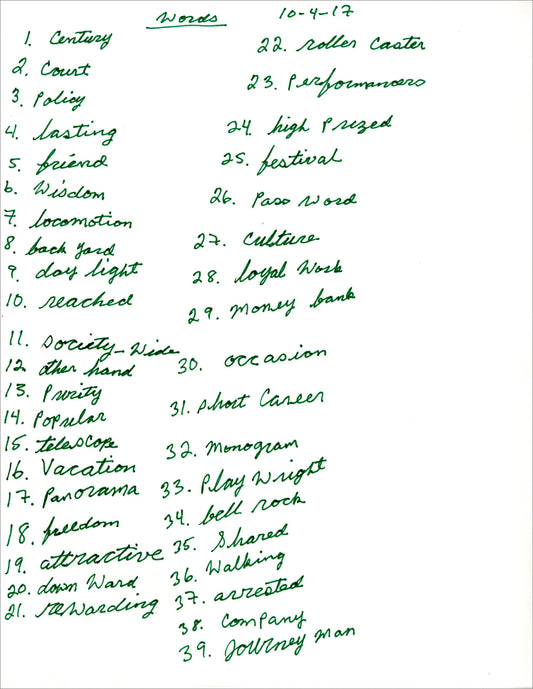 Words 10-4-17
1. Century
2. Court
3. Policy
4. lasting
5. friend
6. Wisdom
7. locomotion
8. back yard
9. day light
10. reached
11. Society-Wide
12. other hand
13. Purity
14. Popular
15. telescope
16. Vacation
17. Panorama
18. freedom
19. attractive
20. down Ward
21. reWarding
22. roller Caster
23. Performancers
24. high Prized
25. festival
26. Pass Word
27. Culture
28. loyal Work
29. Money bank
30. occasion
31. short Career
32. Monogram
33. Play Wright
34. bell rock
35. Shared
36. Walking
37. arrested
38. Company
39. Journey man